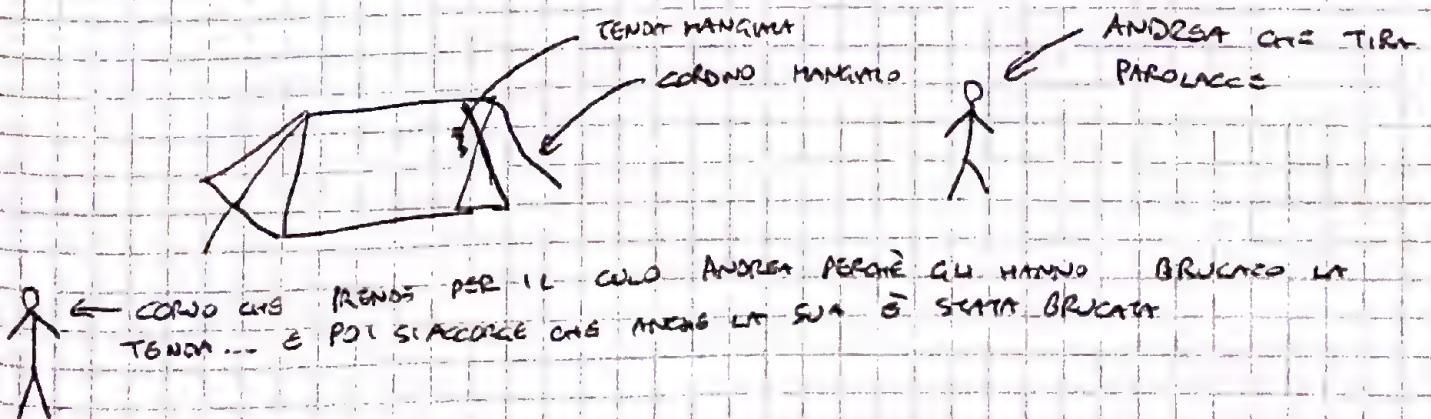 TENDA MANGIATA
CORDINO MANGIATO
ANDREA CHE TIRA
PAROLACCE
← CORVO CHE PRENDE PER IL CULO ANDREA PERCHÈ GLI HANNO BRUCATO LA
TENDA... E POI SI ACCORGE CHE ANCHE LA SUA È STATA BRUCATA